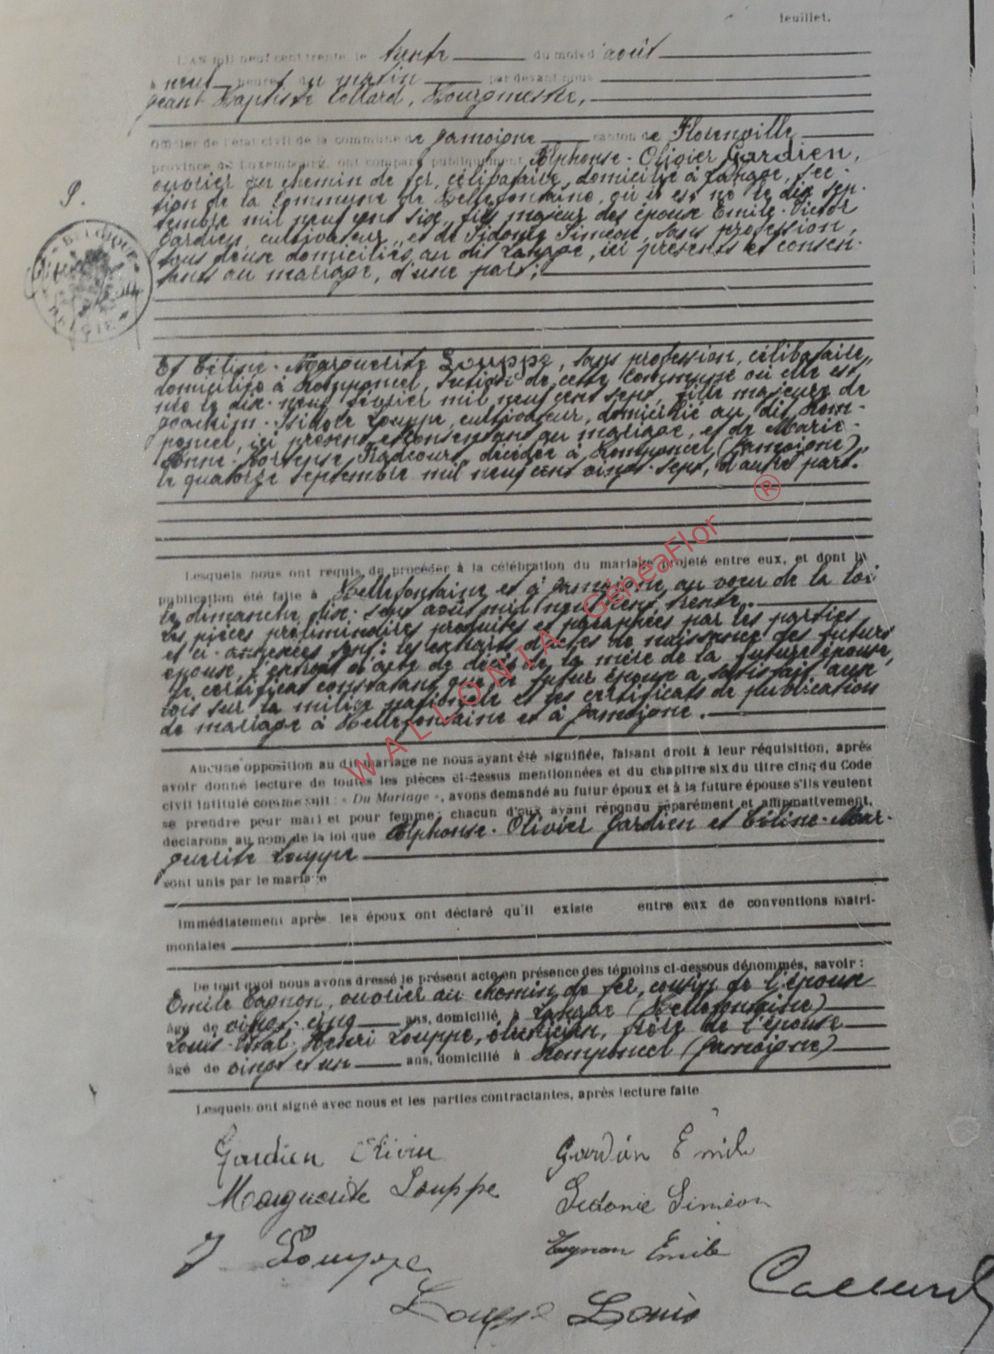 feuillet.
L'AN mil neuf cent trente le trente du mois d'août
à neuf heures du matin par devant nous
Jean Baptiste Collard, Bourgmestre,
Officier de l'état civil de la commune de Jamoigne canton de Florenville
province de Luxembourg, ont comparu publiquement Alphonse-Olivier Gardien,
ouvrier au chemin de fer, célibataire, domicilié à Lahage, sec-
tion de la commune de Bellefontaine, où il est né le dix sep-
tembre mil neuf cent six, fils majeur des époux Emile-Victor
Gardien, cultivateur, et de Sidonie Siméon, sans profession,
tous deux domiciliés au dit Lahage, ici présents et consen-
tants au mariage, d'une part;
Et Céline-Marguerite Louppe, sans profession, célibataire,
domiciliée à Romponcel, section de cette commune où elle est
née le dix-neuf février mil neuf cent sept, fille majeure de
Joachim-Isidore Louppe, cultivateur, domicilié au dit Rom-
poncel, ici présent et consentant au mariage, et de Marie-
Hortense décédée à Romponcel (Jamoigne),
le quatorze septembre mil neuf cent vingt-sept, d'autre part.
Lesquels nous ont requis de procéder à la célébration du mariage projeté entre eux, et dont la
publication été faite à Bellefontaine et à Jamoigne au vœu de la loi
le dimanche dix-sept août mil neuf cent trente.
Les pièces préliminaires produites et paraphées par les parties
et ci-annexées sont: les extraits d'actes de naissance des futurs
époux, l'extrait d'acte de décès de la mère de la future épouse,
le certificat constatant que le futur époux a satisfait aux
lois sur la milice nationale et les certificats de publication
de mariage à Bellefontaine et à Jamoigne.
Aucune opposition au dit mariage ne nous ayant été signifiée, faisant droit à leur réquisition, après
avoir donné lecture de toutes les pièces ci-dessus mentionnées et du chapitre six du titre cinq du Code
civil intitulé comme suit: « Du Mariage », avons demandé au futur époux et à la future épouse s'ils veulent
se prendre pour mari et pour femme; chacun d'eux ayant répondu séparément et affirmativement,
déclarons au nom de la loi que Alphonse-Olivier Gardien et Céline-Mar-
guerite Louppe
sont unis par le mariage
Immédiatement après, les époux ont déclaré qu'il existe entre eux de conventions matri-
moniales
De tout quoi nous avons dressé le présent acte en présence des témoins ci-dessous dénommés, savoir:
Emile Tagnon, ouvrier au chemin de fer, cousin de l'époux
âgé de vingt-cinq ans, domicilié à Lahage (Bellefontaine)
Louis Henri Louppe, frère de l'épouse
âgé de vingt et un ans, domicilié à Romponcel (Jamoigne)
Lesquels ont signé avec nous et les parties contractantes, après lecture faite
Gardien Olivier Gardien Emile
Marguerite Louppe Sidonie Siméon
J Louppe Tagnon Emile
Louppe Louis Collard
WALLONIA GénéaFlor ®